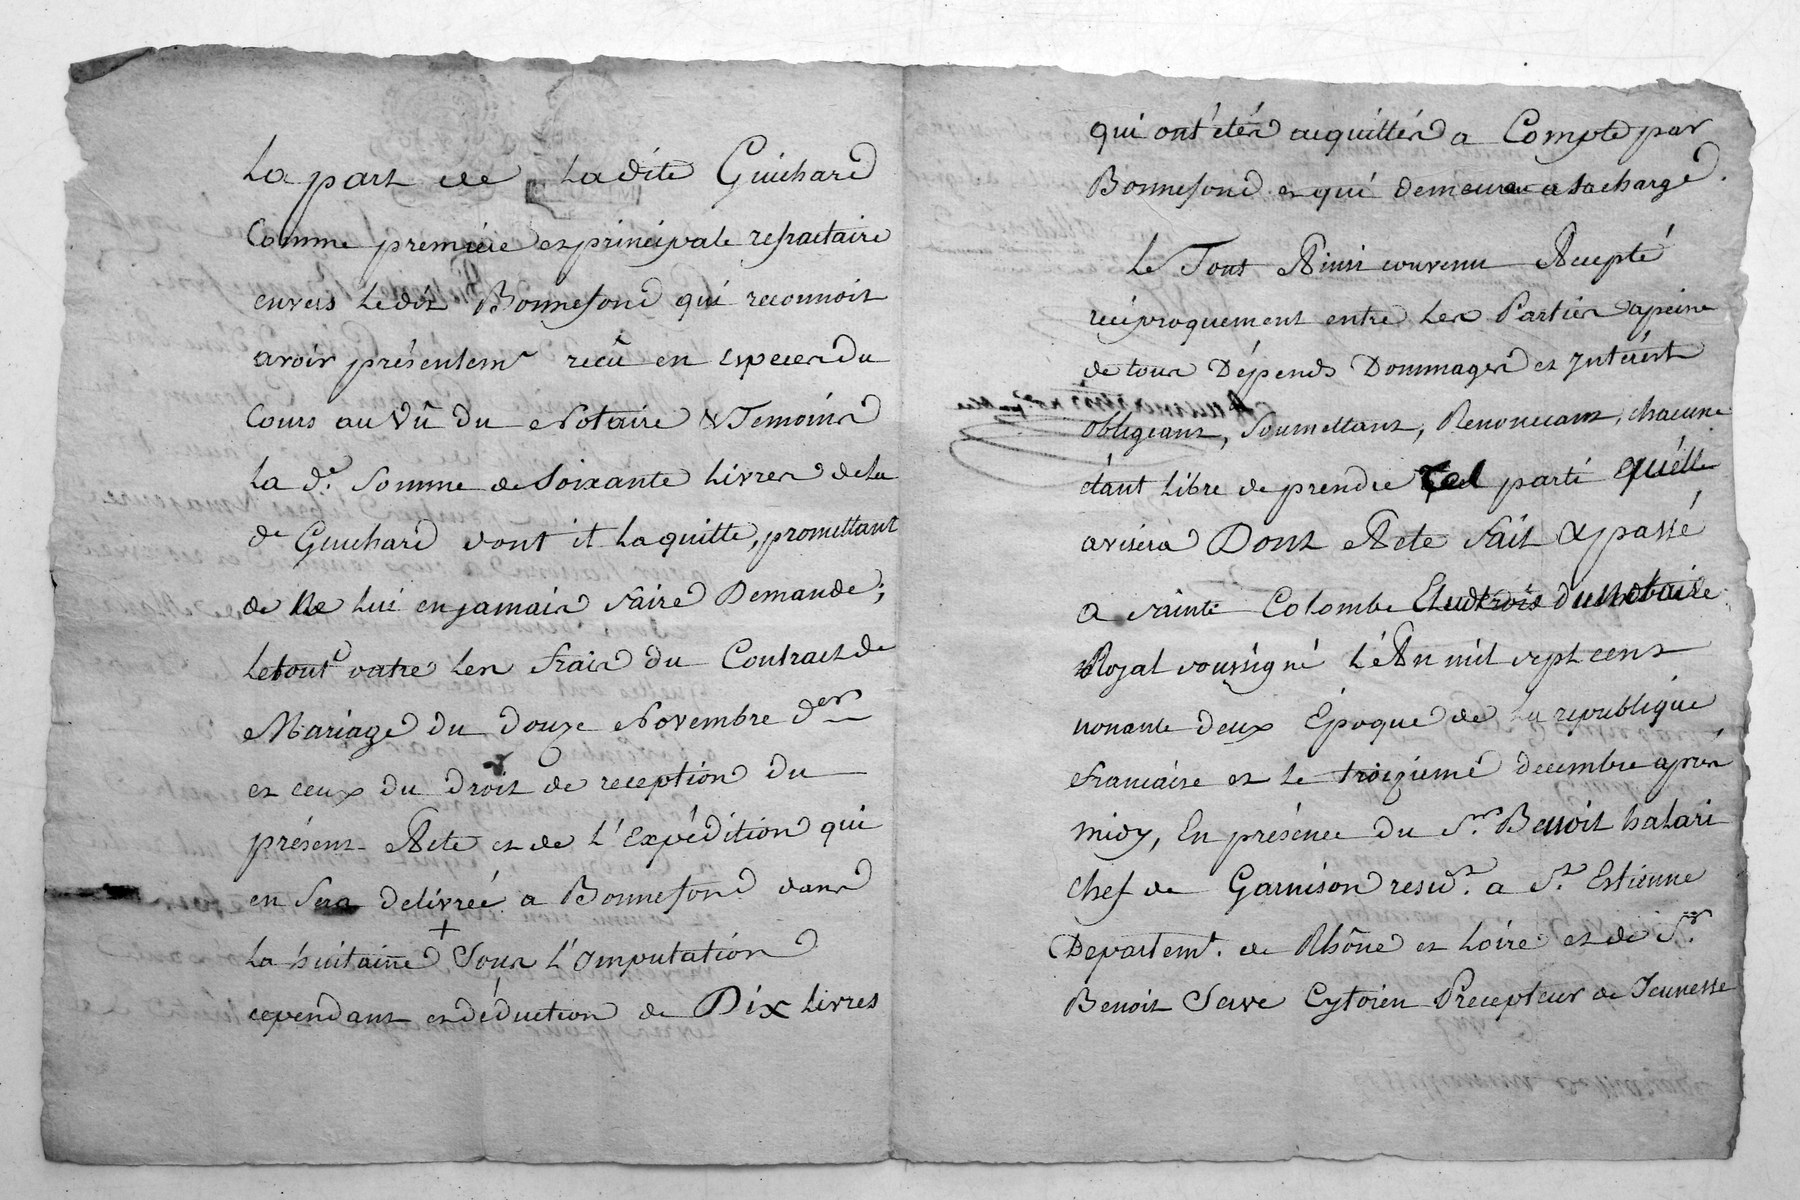 La part de Ladite Guichard
Comme premiere et principale refractaire
envers Ledit Bonnefond qui reconnoit
avoir présentemt recû en Especes du
Cours au Vû du Notaire & Temoins
La de. Somme de Soixante Livres de La
de Guichard dont il La quitte, promettant
de Ne Lui en jamais faire Demande;
Le tout outre Les frais du Contract de
Mariage du Douze Novembre der
et ceux du Droit de reception du
présent Acte et de L'Expédition qui
en Sera Delivréé a Bonnefond dans
La huitaine + Sous L'Imputation
cependant et déduction de Dix Livres
qui ont étés acquittés a Compte par
Bonnefond et qui demeure a Sa charge.
Le Tout Ainsi convenu Accepté
réciproquement entre Les Parties a peine
de tous Dépends Dommages et Intérêt
obligeant, Soumettant, Renonceant, chacune
étant Libre de prendre tel parti quélle
avisera Dont Acte fait & passé
a Sainte Colombe Etude du Notaire
Royal soussigné L'An mil sept cent
nonante deux Époque de La republique
francaise et Le troizieme decembre après
midy, En présence du Sr. Benoit halari
chef de Garnison residt. a St. Estienne
Departemt. de Rhône et Loire et de Sr.
Benoit Serve Cytoien Précepteur de Jeunesse